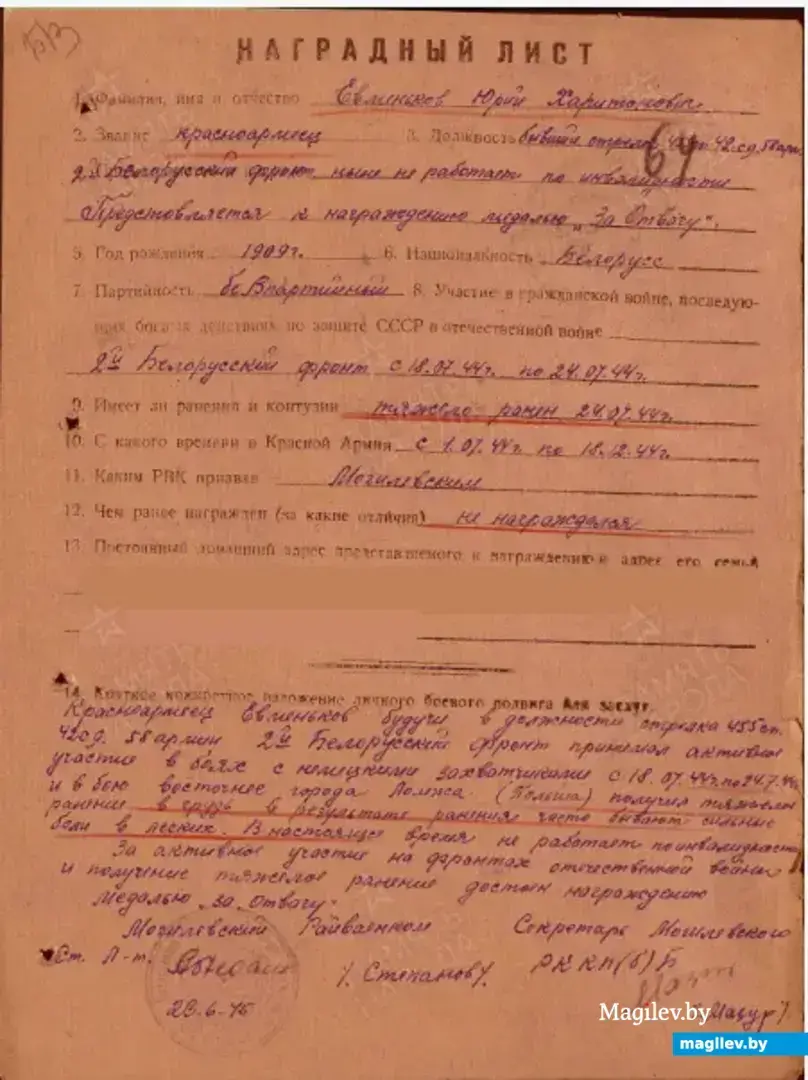 НАГРАДНЫЙ ЛИСТ
1. Фамилия, имя и отчество Евменьков Юрий Харитонович
2. Звание красноармеец 3. Должность бывший стрелок 42 сд. 58 арм.
64
2й Белорусский фронт ныне не работает по инвалидности
Предстовляется к награждению медалью "За Отвагу".
5. Год рождения 1909г. 6. Национальность Белорусс
7. Партийность безпартийный 8. Участие в гражданской войне, последую-
щих боевых действиях по защите СССР в отечественной войне
2й Белорусский фронт с 18.07.44г. по 24.07.44г.
9. Имеет ли ранения и контузии тяжело ранен 24.07.44г.
10. С какого времени в Красной Армии с 1.07.44г по 18.12.44г.
11. Каким РВК призван Могилевским
12. Чем ранее награжден (за какие отличия) не награждался
13. Постоянный домашний адрес представляемого к награждению и адрес его семьи
14. Краткое конкретное изложение личного боевого подвига или заслуг.
Красноармеец Евменьков будучи в должности стрелка 455 сп.
42 сд. 58 армии 2й Белорусский фронт принемал активное
участие в боях с немецкими захватчиками с 18.07.44г. по 24.7.44
и в бою восточнее города Ломжа (Польша) получил тяжелое
ранение в грудь в результате ранения часто бывают сильные
боли в легких. В настоящее время не работает по инвалидности
За активное участие на фронтах отечественной войны
и получение тяжелое ранение достоин награждению
медалью "За Отвагу".
Могилевский Райвоенком Секретарь Могилевского
Ст. Л-т. /Степанов/. РК КП(б)Б
28-6-45 /Мазур/
Magilev.by
magllev.by